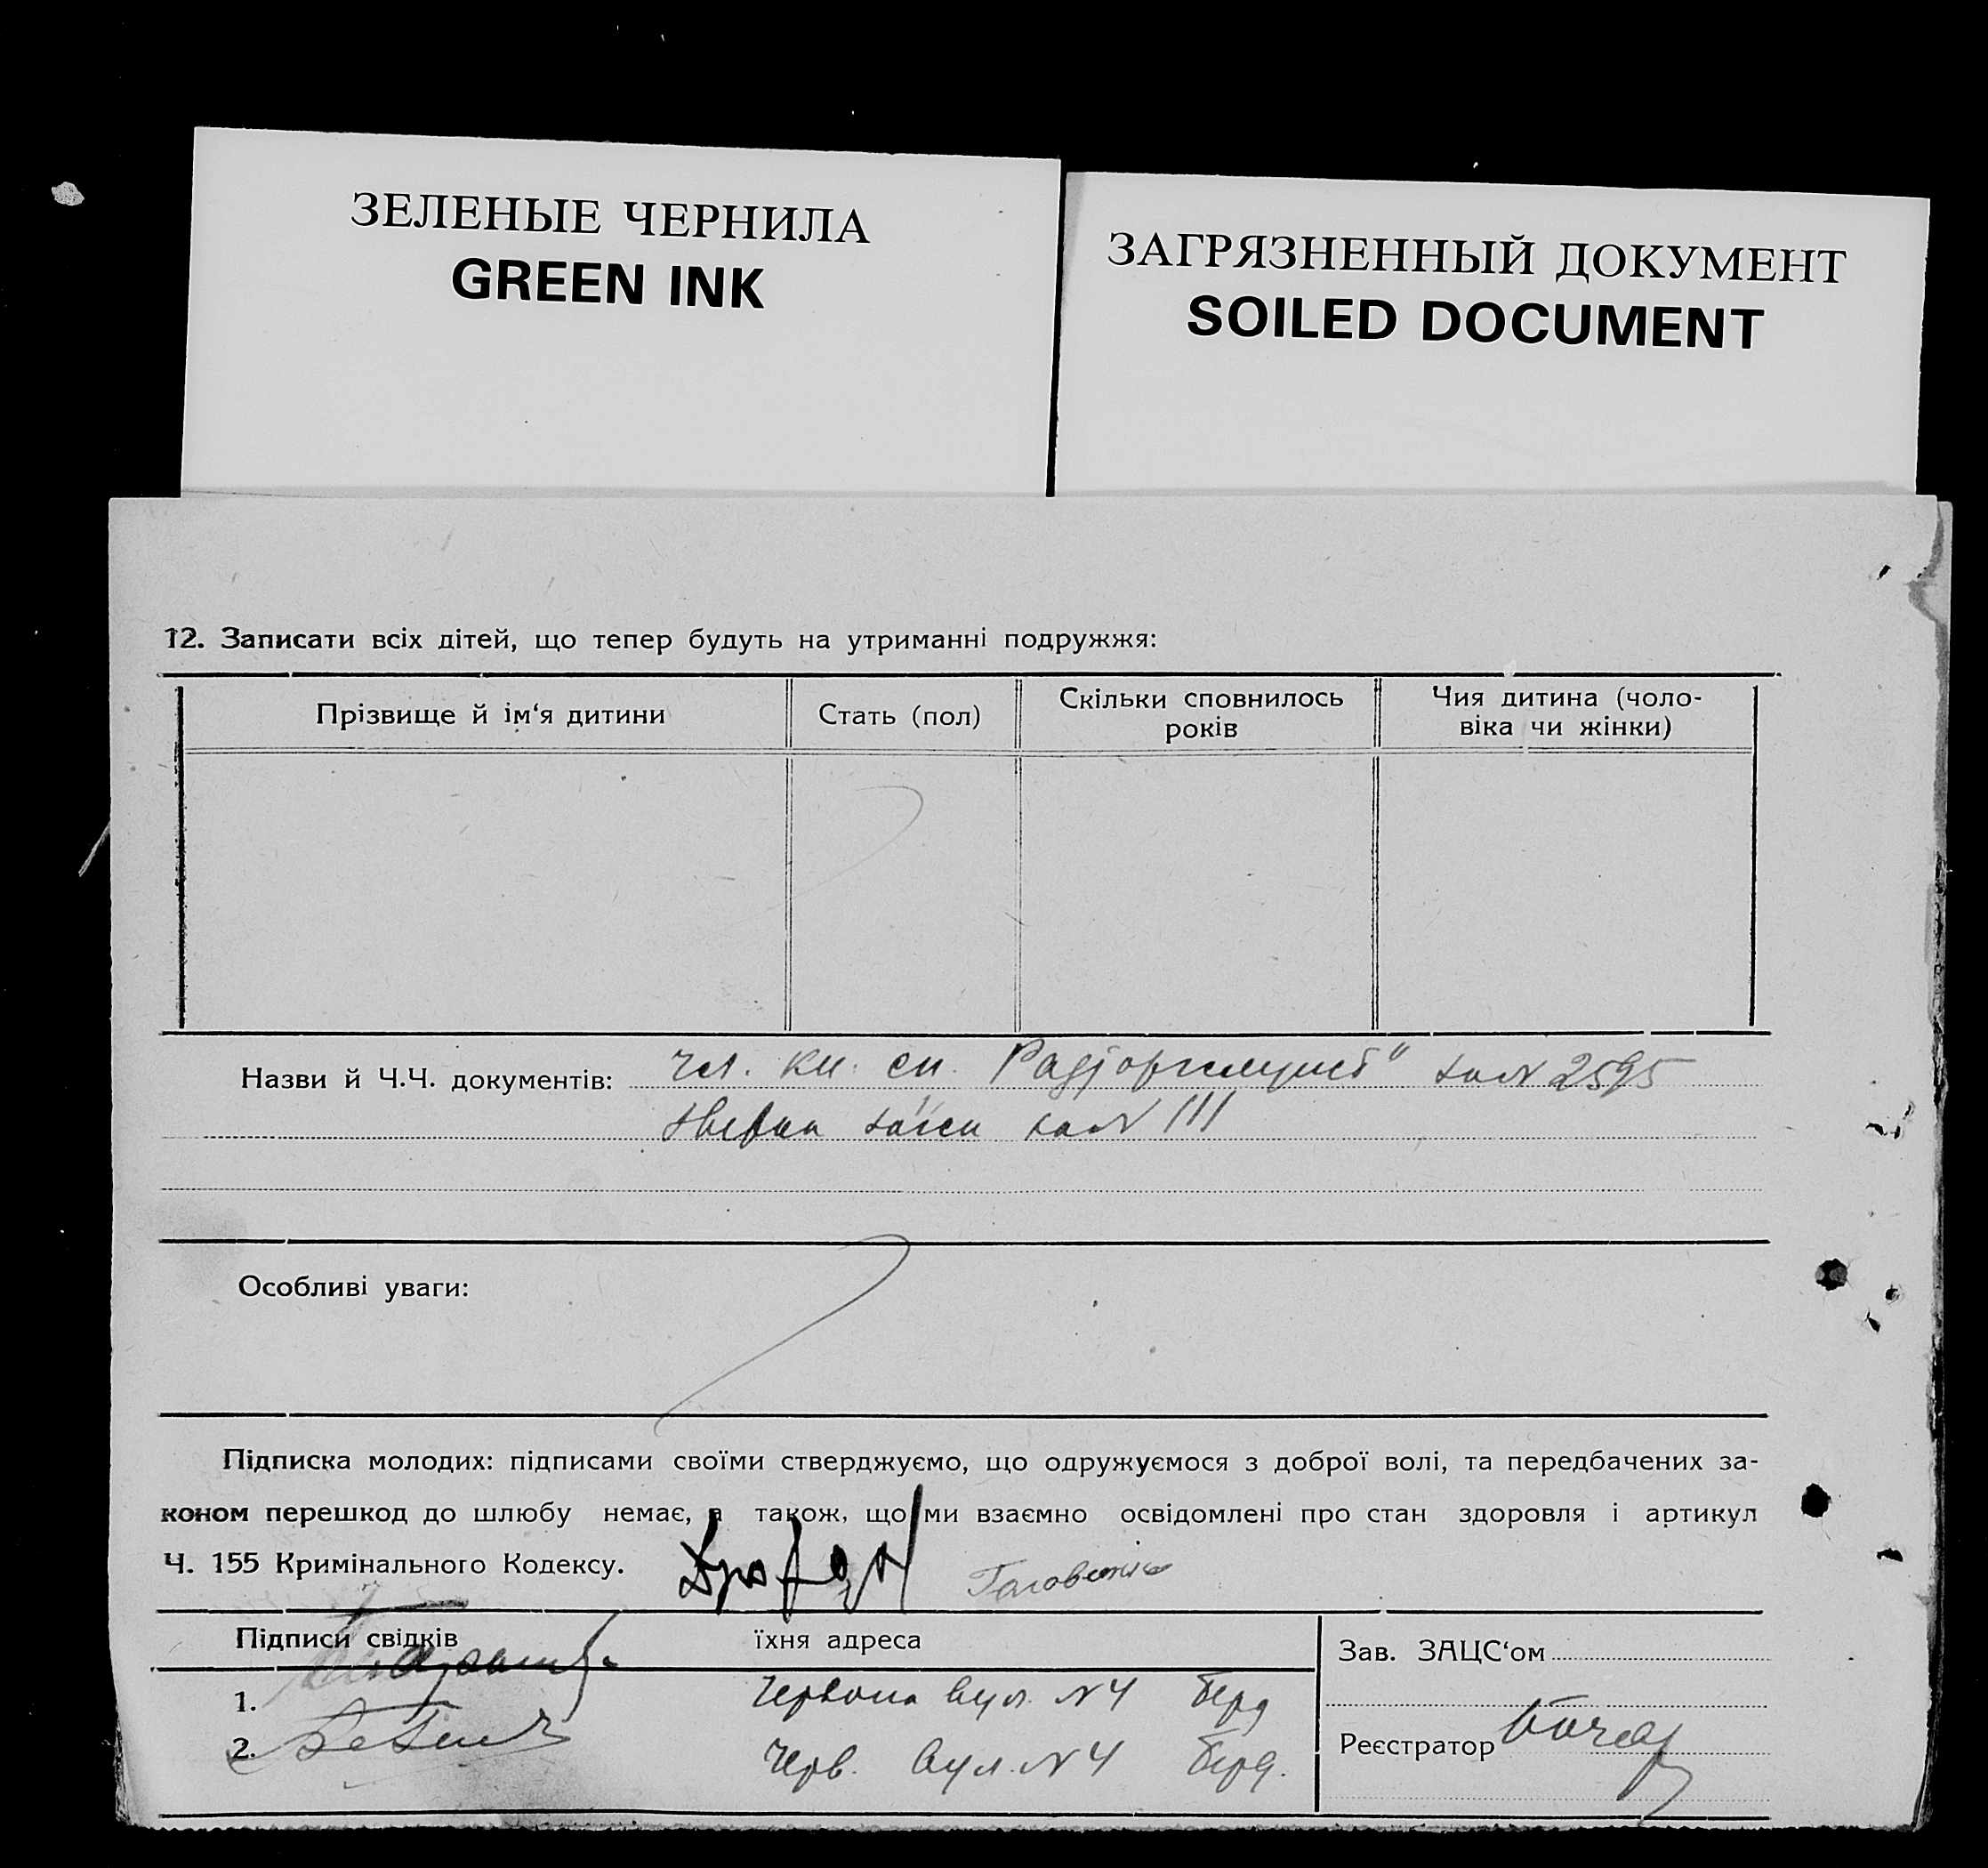 ЗЕЛЕНЫЕ ЧЕРНИЛА
GREEN INK
ЗАГРЯЗНЕННЫЙ ДОКУМЕНТ
SOILED DOCUMENT
12. Записати всіх дітей, що тепер будуть на утриманні подружжя:
Прізвище й ім‘я дитини
Стать (пол)
Скільки сповнилось
років
Чия дитина (чоло-
віка чи жінки)
Назви й Ч.Ч. документів: чл. кн. сп. за N 2595
за N 111
Особливі уваги:
Підписка молодих: підписами своїми стверджуємо, що одружуємося з доброї волі, та передбачених за-
коном перешкод до шлюбу немає, а також, що ми взаємно освідомлені про стан здоровля і артикул
Ч. 155 Кримінального Кодексу.
Підписи свідків
їхня адреса
1. Червона вул. N 4 Берд
2. Черв. вул. N 4 Берд.
Зав. ЗАЦС‘ом
Реєстратор